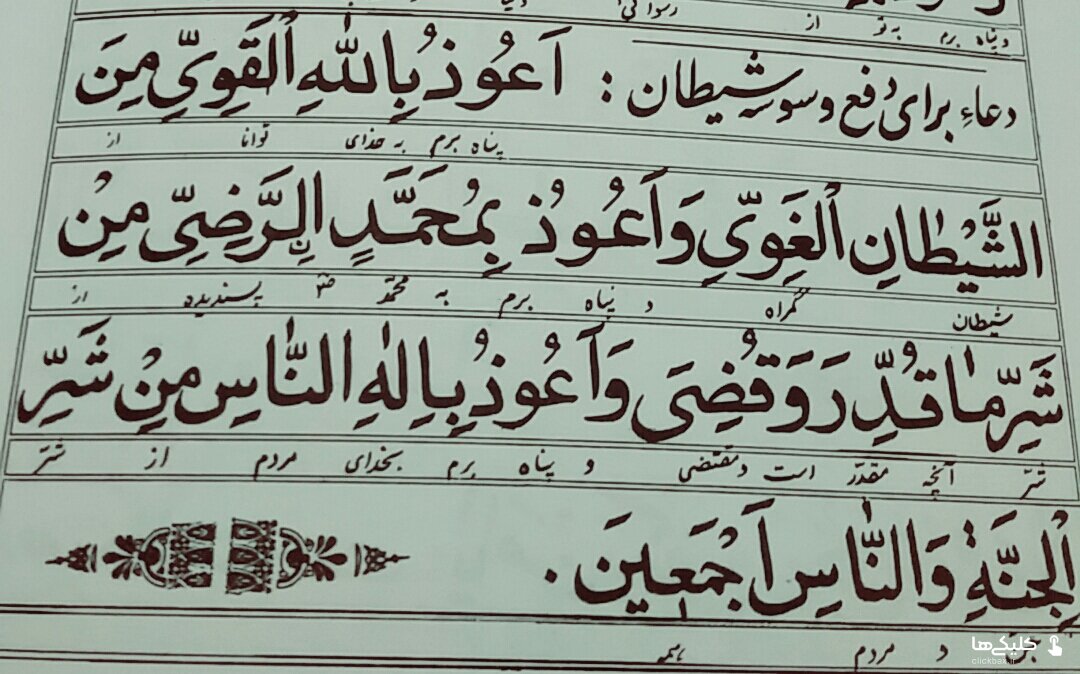 رسوائی
و پناه برم به تو از
دعاءِ برای دفع وسوسه شیطان : اَعُوذُ بِاللّٰهِ الْقَوِیِّ مِنَ
پناه برم به خدای توانا از
الشَّیْطٰانِ الْغَوِیِّ وَاَعُوذُ بِمُحَمَّدٍ الرَّضِیِّ مِنْ
شیطان گمراه و پناه برم به محمّد ص پسندیده از
شَرِّ مٰا قُدِّرَ وَ قُضِیَ وَ اَعُوذُ بِاِلٰهِ النّٰاسِ مِنْ شَرِّ
شرّ آنچه مقدّر است و مقتضی و پناه برم بخدای مردم از شرّ
الْجِنَّةِ وَالنّٰاسِ اَجْمَعِینَ .
جنّ و مردم همه
کلیکی‌ها